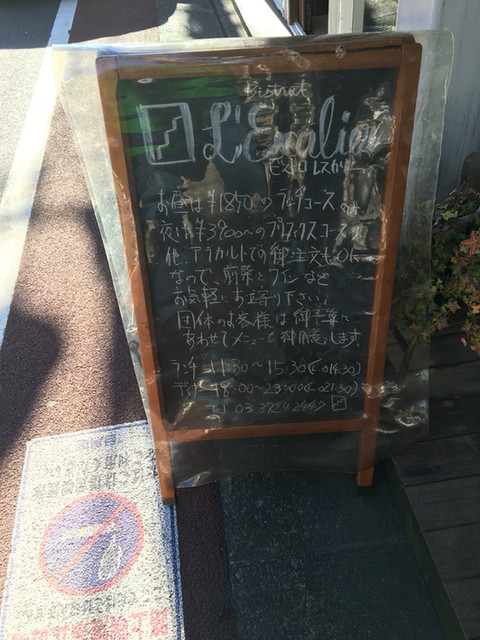 Bistrot
L'Escalier
ビストロ レスカリエ
お昼は ¥1850のランチコースのみ
夜は ¥3900〜のプリフィックスコースの
他、アラカルトでの御注文もOK
なので、前菜とワインなど
お気軽にお立寄り下さい。
団体のお客様は御予算に
あわせてメニューを御用意します。
ランチ 11:30〜15:30(L.O14:30)
ディナー 18:00〜23:00(L.O21:30)
Tel 03 3724 2447